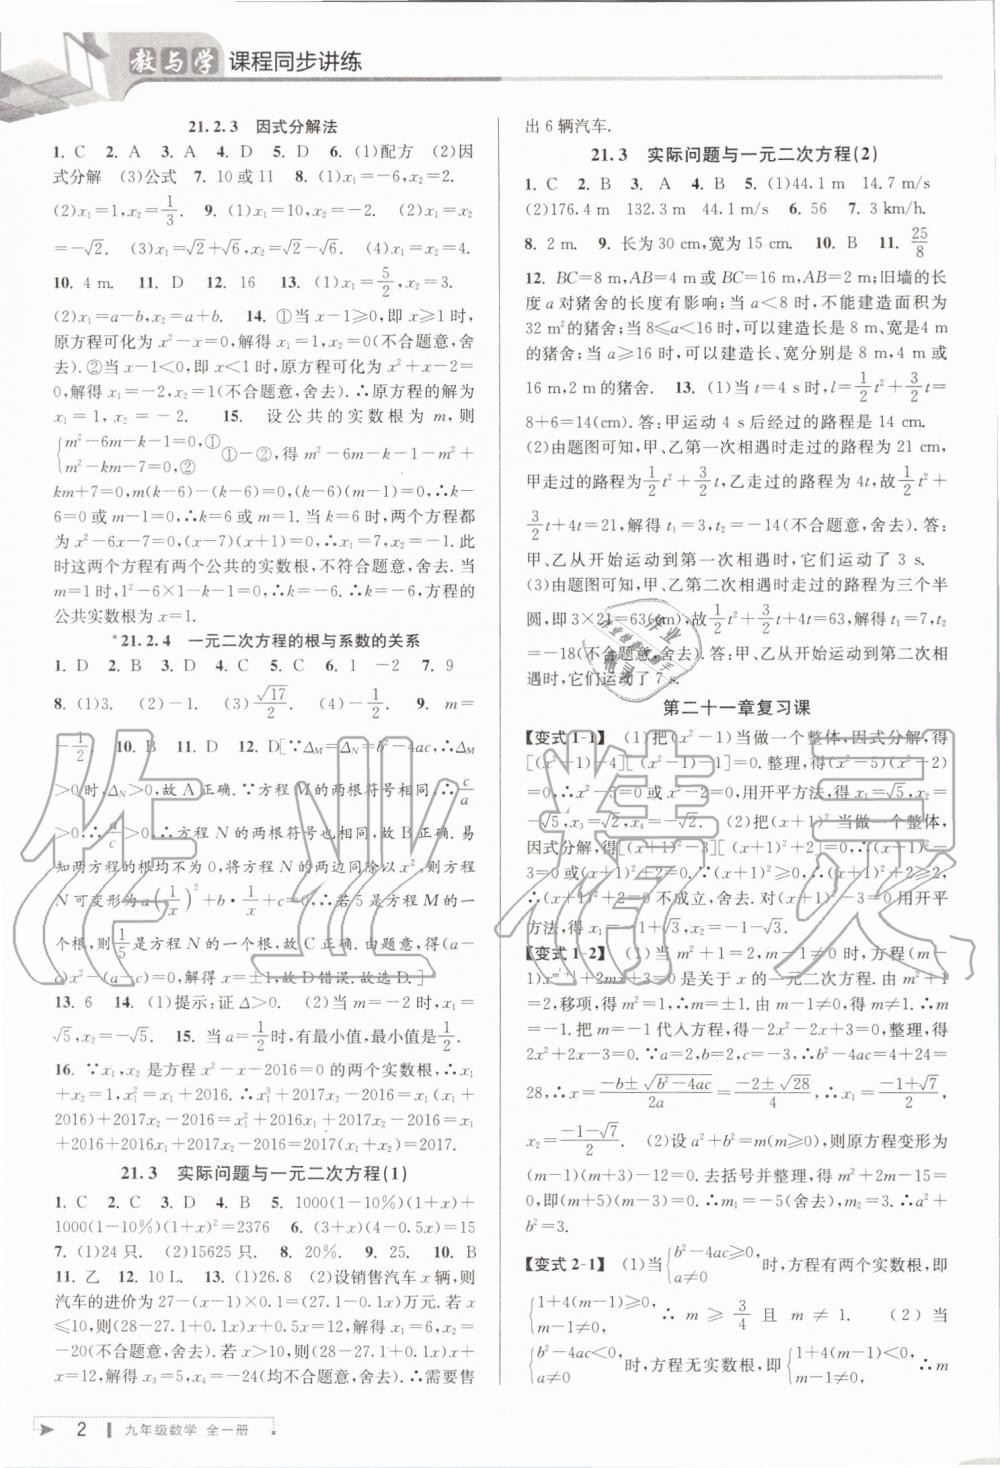 教与学 课程同步讲练
21.2.3 因式分解法
1. C 2. A 3. A 4. D 5. D 6. (1)配方 (2)因
式分解 (3)公式 7. 10或11 8. (1)x₁=-6,x₂=2.
(2)x₁=1,x₂=1/3. 9. (1)x₁=10,x₂=-2. (2)x₁=x₂
=-√2. (3)x₁=√2+√6,x₂=√2-√6. (4)x₁=x₂=4.
10. 4 m. 11. D 12. 16 13. (1)x₁=5/2,x₂=3.
(2)x₁=a-b,x₂=a+b. 14. ①当x-1≥0,即x≥1时,
原方程可化为x²-x=0,解得x₁=1,x₂=0(不合题意,舍
去).②当x-1<0,即x<1时,原方程可化为x²+x-2=
0,解得x₁=-2,x₂=1(不合题意,舍去).∴原方程的解为
x₁=1,x₂=-2. 15. 设公共的实数根为m,则
{m²-6m-k-1=0,① m²-km-7=0,② ①-②,得m²-6m-k-1-m²+
km+7=0,m(k-6)-(k-6)=0,(k-6)(m-1)=0,∴k-
6=0或m-1=0,∴k=6或m=1.当k=6时,两个方程都
为x²-6x-7=0,(x-7)(x+1)=0,∴x₁=7,x₂=-1.此
时这两个方程有两个公共的实数根,不符合题意,舍去.当
m=1时,1²-6×1-k-1=0,∴k=-6,∴两个方程的
公共实数根为x=1.
*21.2.4 一元二次方程的根与系数的关系
1. D 2. B 3. D 4. D 5. C 6. 1 -2 7. 9
8. (1)3. (2)-1. (3)√17/2. (4)-1/2. 9. m=
-1/2. 10. B 11. D 12. D[∵Δ_M=Δ_N=b²-4ac,∴Δ_M
>0时,Δ_N>0,故A正确.∵方程M的两根符号相同,∴c/a
>0,∴a/c>0,∴方程N的两根符号也相同,故B正确.易
知两方程均不为0,将方程N的两边同除以x²,则方程
N可变形为a(1/x)²+b·1/x+c=0,∴若5是方程M的一
个根,则1/5是方程N的一个根,故C正确.由题意,得(a-
c)x²-(a-c)=0,解得x=±1,故D错误.故选D.]
13. 6 14. (1)提示:证Δ>0. (2)当m=-2时,x₁=
√5,x₂=-√5. 15. 当a=1/2时,有最小值,最小值是1/2.
16. ∵x₁,x₂是方程x²-x-2016=0的两个实数根,∴x₁
+x₂=1,x₁²=x₁+2016.∴x₁³+2017x₂-2016=x₁(x₁+
2016)+2017x₂-2016=x₁²+2016x₁+2017x₂-2016=x₁
+2016+2016x₁+2017x₂-2016=2017(x₁+x₂)=2017.
21.3 实际问题与一元二次方程(1)
1. C 2. C 3. D 4. B 5. 1000(1-10%)(1+x)+
1000(1-10%)(1+x)²=2376 6. (3+x)(4-0.5x)=15
7. (1)24只. (2)15625只. 8. 20%. 9. 25. 10. B
11. 乙 12. 10 L. 13. (1)26.8 (2)设销售汽车x辆,则
汽车的进价为27-(x-1)×0.1=(27.1-0.1x)万元.若x
≤10,则(28-27.1+0.1x)x+0.5x=12,解得x₁=6,x₂=
-20(不合题意,舍去).若x>10,则(28-27.1+0.1x)x+
x=12,解得x₃=5,x₄=-24(均不合题意,舍去).∴需要售
出6辆汽车.
21.3 实际问题与一元二次方程(2)
1. C 2. B 3. A 4. B 5. (1)44.1 m 14.7 m/s
(2)176.4 m 132.3 m 44.1 m/s 6. 56 7. 3 km/h.
8. 2 m. 9. 长为30 cm,宽为15 cm. 10. B 11. 25/8
12. BC=8 m,AB=4 m或BC=16 m,AB=2 m;旧墙的长
度a对猪舍的长度有影响;当a<8时,不能建造面积为
32 m²的猪舍;当8≤a<16时,可以建造长是8 m,宽是4 m
的猪舍;当a≥16时,可以建造长、宽分别是8 m,4 m或
16 m,2 m的猪舍. 13. (1)当t=4 s时,l=1/2t²+3/2t=
8+6=14(cm).答:甲运动4 s后经过的路程是14 cm.
(2)由题图可知,甲、乙第一次相遇时走过的路程为21 cm,
甲走过的路程为1/2t²+3/2t,乙走过的路程为4t,故1/2t²+
3/2t+4t=21,解得t₁=3,t₂=-14(不合题意,舍去).答:
甲、乙从开始运动到第一次相遇时,它们运动了3 s.
(3)由题图可知,甲、乙第二次相遇时走过的路程为三个半
圆,即3×21=63(cm),故1/2t²+3/2t+4t=63,解得t₁=7,t₂
=-18(不合题意,舍去).答:甲、乙从开始运动到第二次相
遇时,它们运动了7 s.
第二十一章复习课
【变式1-1】 (1)把(x²-1)当做一个整体,因式分解,得
[(x²-1)-4][(x²-1)-1]=0.整理,得(x²-5)(x²-2)
=0,∴x²-5=0或x²-2=0,用开平方法,得x₁=√5,x₂=
-√5,x₃=√2,x₄=-√2. (2)把(x+1)²当做一个整体,
因式分解,得[(x+1)²-3][(x+1)²+2]=0.∴(x+1)²-
3=0或(x+1)²+2=0.∵(x+1)²≥0,∴(x+1)²+2≥2,
∴(x+1)²+2=0不成立,舍去.对(x+1)²-3=0用开平
方法,得x₁=-1+√3,x₂=-1-√3.
【变式1-2】 (1)当m²+1=2,m-1≠0时,方程(m-
1)x^(m²+1)+2mx+3=0是关于x的一元二次方程.由m²+1
=2,移项,得m²=1,∴m=±1.由m-1≠0,得m≠1.∴m
=-1.把m=-1代入方程,得-2x²-2x+3=0,整理,得
2x²+2x-3=0.∵a=2,b=2,c=-3,∴b²-4ac=4+24=
28,∴x=(-b±√(b²-4ac))/2a=(-2±√28)/4,∴x₁=(-1+√7)/2,
x₂=(-1-√7)/2. (2)设a²+b²=m(m≥0),则原方程变形为
(m-1)(m+3)-12=0.去括号并整理,得m²+2m-15=
0,即(m+5)(m-3)=0.∴m₁=-5(舍去),m₂=3.∴a²+
b²=3.
【变式2-1】 (1)当{b²-4ac≥0, a≠0时,方程有两个实数根,即
{1+4(m-1)≥0, m-1≠0, ∴m≥3/4且m≠1. (2)当
{b²-4ac<0, a≠0时,方程无实数根,即{1+4(m-1)<0, m-1≠0, ∴m
2 九年级数学 全一册
作业精灵